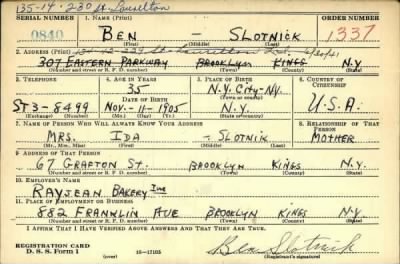 135-14-230 St. Laurelton
SERIAL NUMBER 1. NAME (Print) ORDER NUMBER
0840 BEN - SLOTNICK 1337
(First) (Middle) (Last)
2. ADDRESS (Print)
307 EASTERN PARKWAY BROOKLYN KINGS N.Y.
(Number and street or R. F. D. number) (Town) (County) (State)
3. TELEPHONE 4. AGE IN YEARS 5. PLACE OF BIRTH 6. COUNTRY OF CITIZENSHIP
35 N.Y. CITY-NY.
DATE OF BIRTH (Town or county)
ST 3-8499 NOV.-11-1905 N.Y. U.S.A.
(Exchange) (Number) (Mo.) (Day) (Yr.) (State or country)
7. NAME OF PERSON WHO WILL ALWAYS KNOW YOUR ADDRESS 8. RELATIONSHIP OF THAT PERSON
MRS. IDA - SLOTNIK MOTHER
(Mr., Mrs., Miss) (First) (Middle) (Last)
9. ADDRESS OF THAT PERSON
67 GRAFTON ST. BROOKLYN KINGS N.Y.
(Number and street or R. F. D. number) (Town) (County) (State)
10. EMPLOYER'S NAME
RAYJEAN BAKERY Inc
11. PLACE OF EMPLOYMENT OR BUSINESS
882 FRANKLIN AVE BROOKLYN KINGS N.Y.
(Number and street or R. F. D. number) (Town) (County) (State)
I AFFIRM THAT I HAVE VERIFIED ABOVE ANSWERS AND THAT THEY ARE TRUE.
REGISTRATION CARD
D. S. S. Form 1 (over) 16-17105 Ben Slotnick
(Registrant's signature)